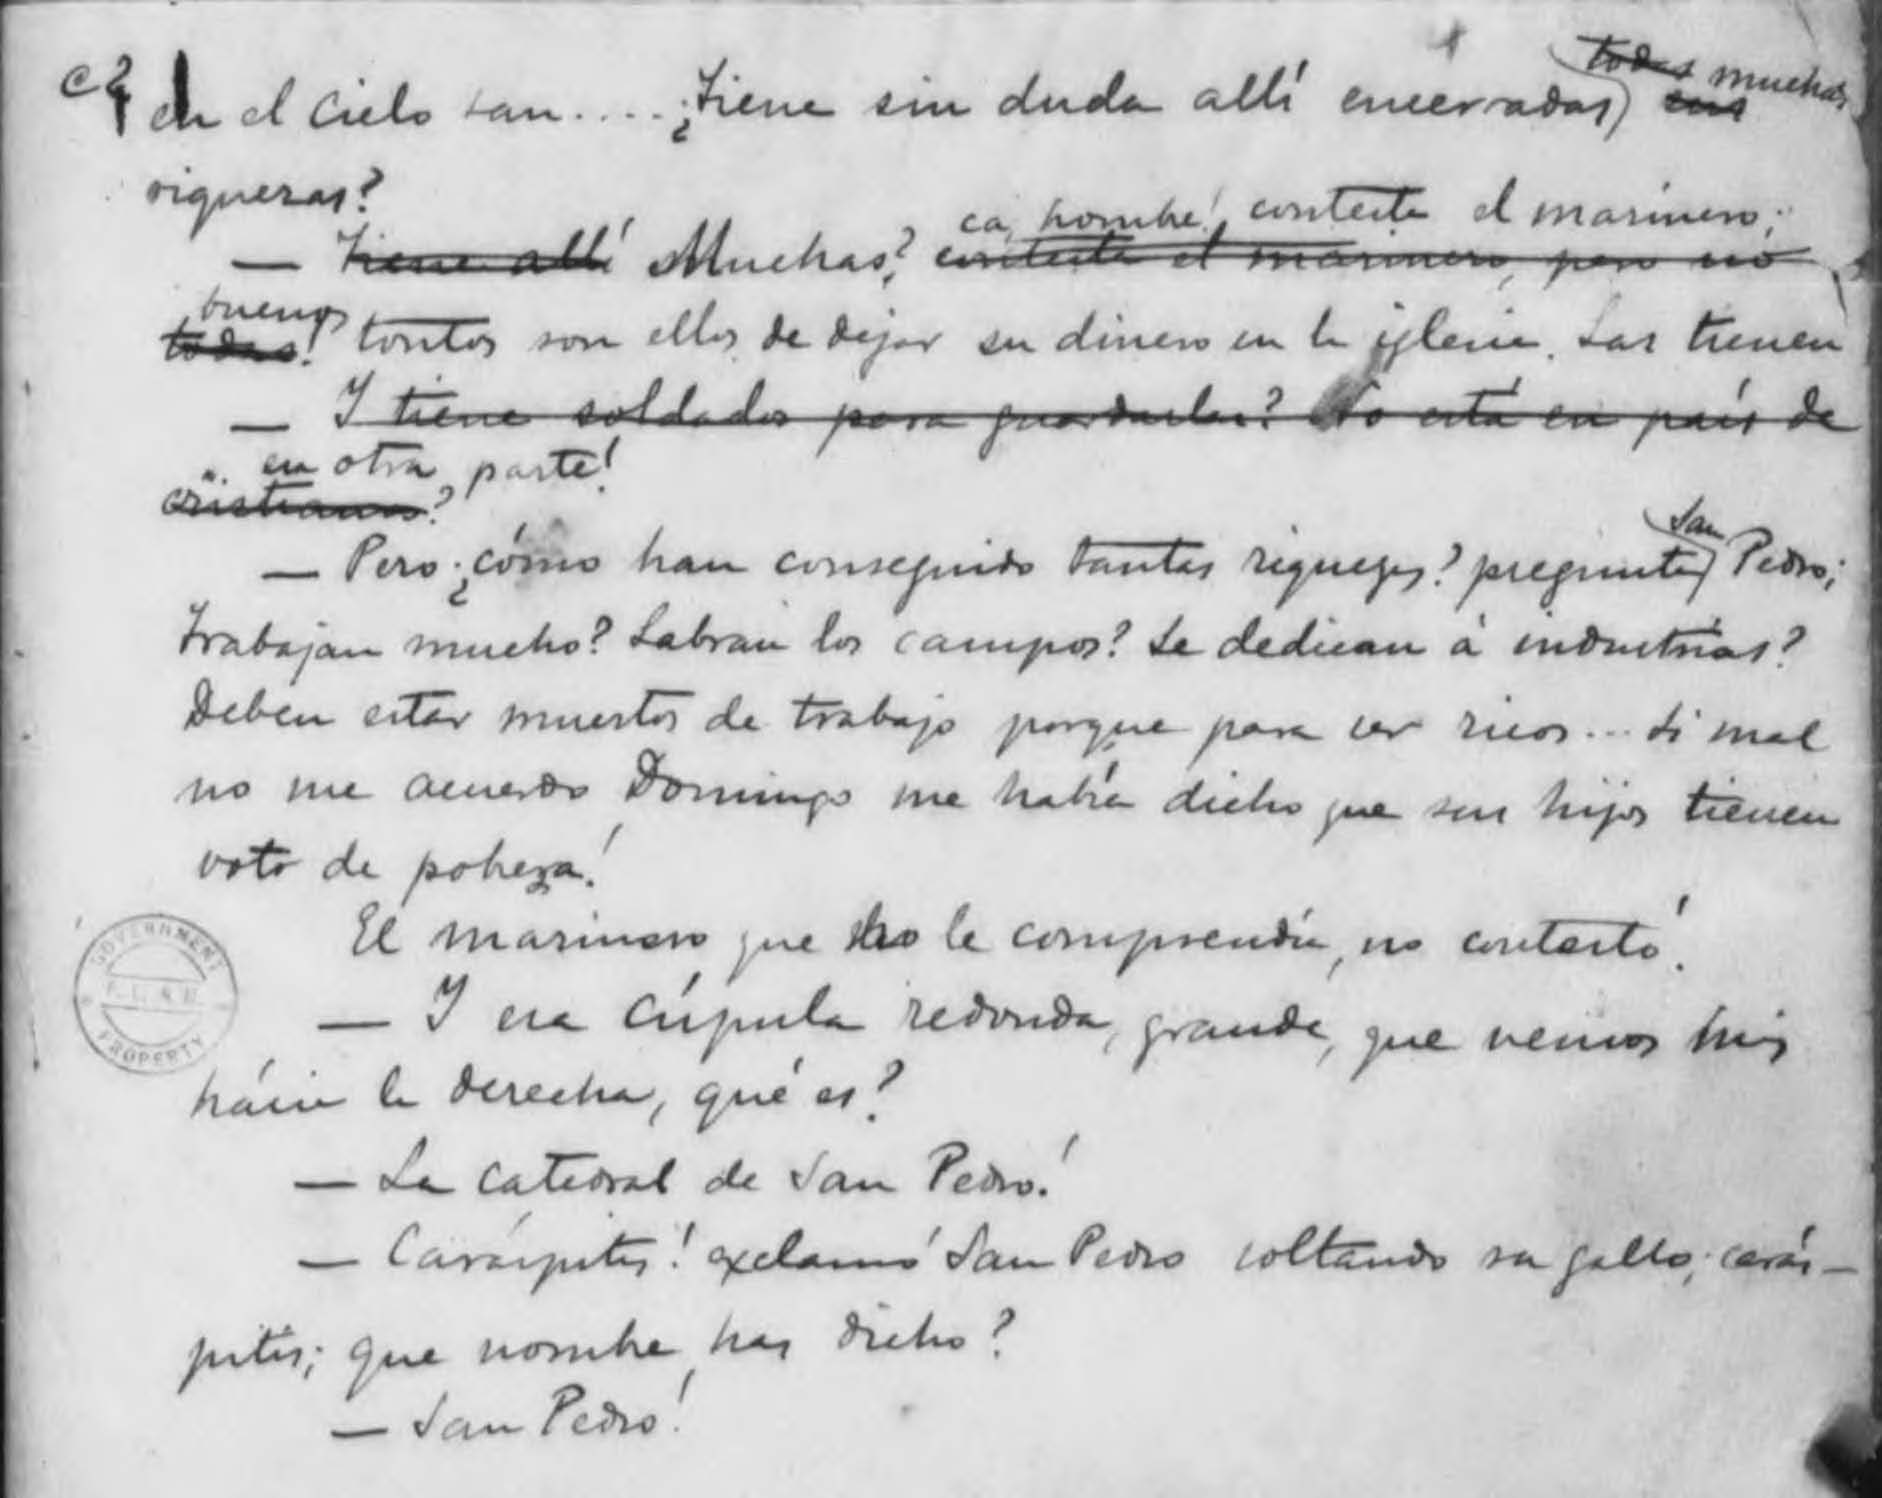 en el cielo tan.... ¿Tiene sin duda allí encerradas todas muchas sus
riquezas?
ca, hombre! contesta el marinero;
— Tiene allí Muchas? contesta el marinero, pero no
buenos
todas! tontos son ellos de dejar su dinero en la iglesia. Las tienen
— Y tiene soldados para guardarlas? No está en país de
en otra parte!
cristianos?
— Pero ¿cómo han conseguido tantas riquezas? pregunta San Pedro;
trabajan mucho? Labran los campos? Se dedican á industrias?
Deben estar muertos de trabajo porque para ser ricos... Si mal
no me acuerdo Domingo me había dicho que sus hijos tienen
voto de pobreza!
El marinero que no le comprendía, no contestó.
— Y esa cúpula redonda, grande, que vemos
hácia la derecha, qué es?
— La catedral de San Pedro!
— Caráspitis! exclamó San Pedro soltando su gallo; carás-
pitis; que nombre has dicho?
— San Pedro!
GOVERNMENT
PROPERTY